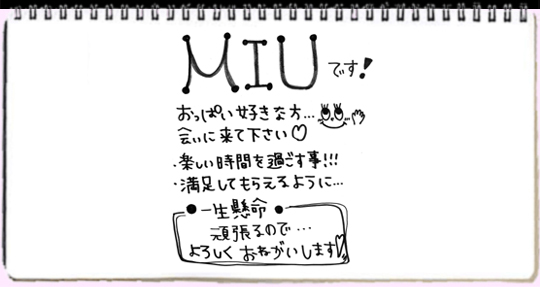 MIUです!
おっぱい好きな方...
会いに来て下さい♡
・楽しい時間を過ごす事!!!
・満足してもらえるように...
●一生懸命●
頑張るので...
よろしくおねがいします♡